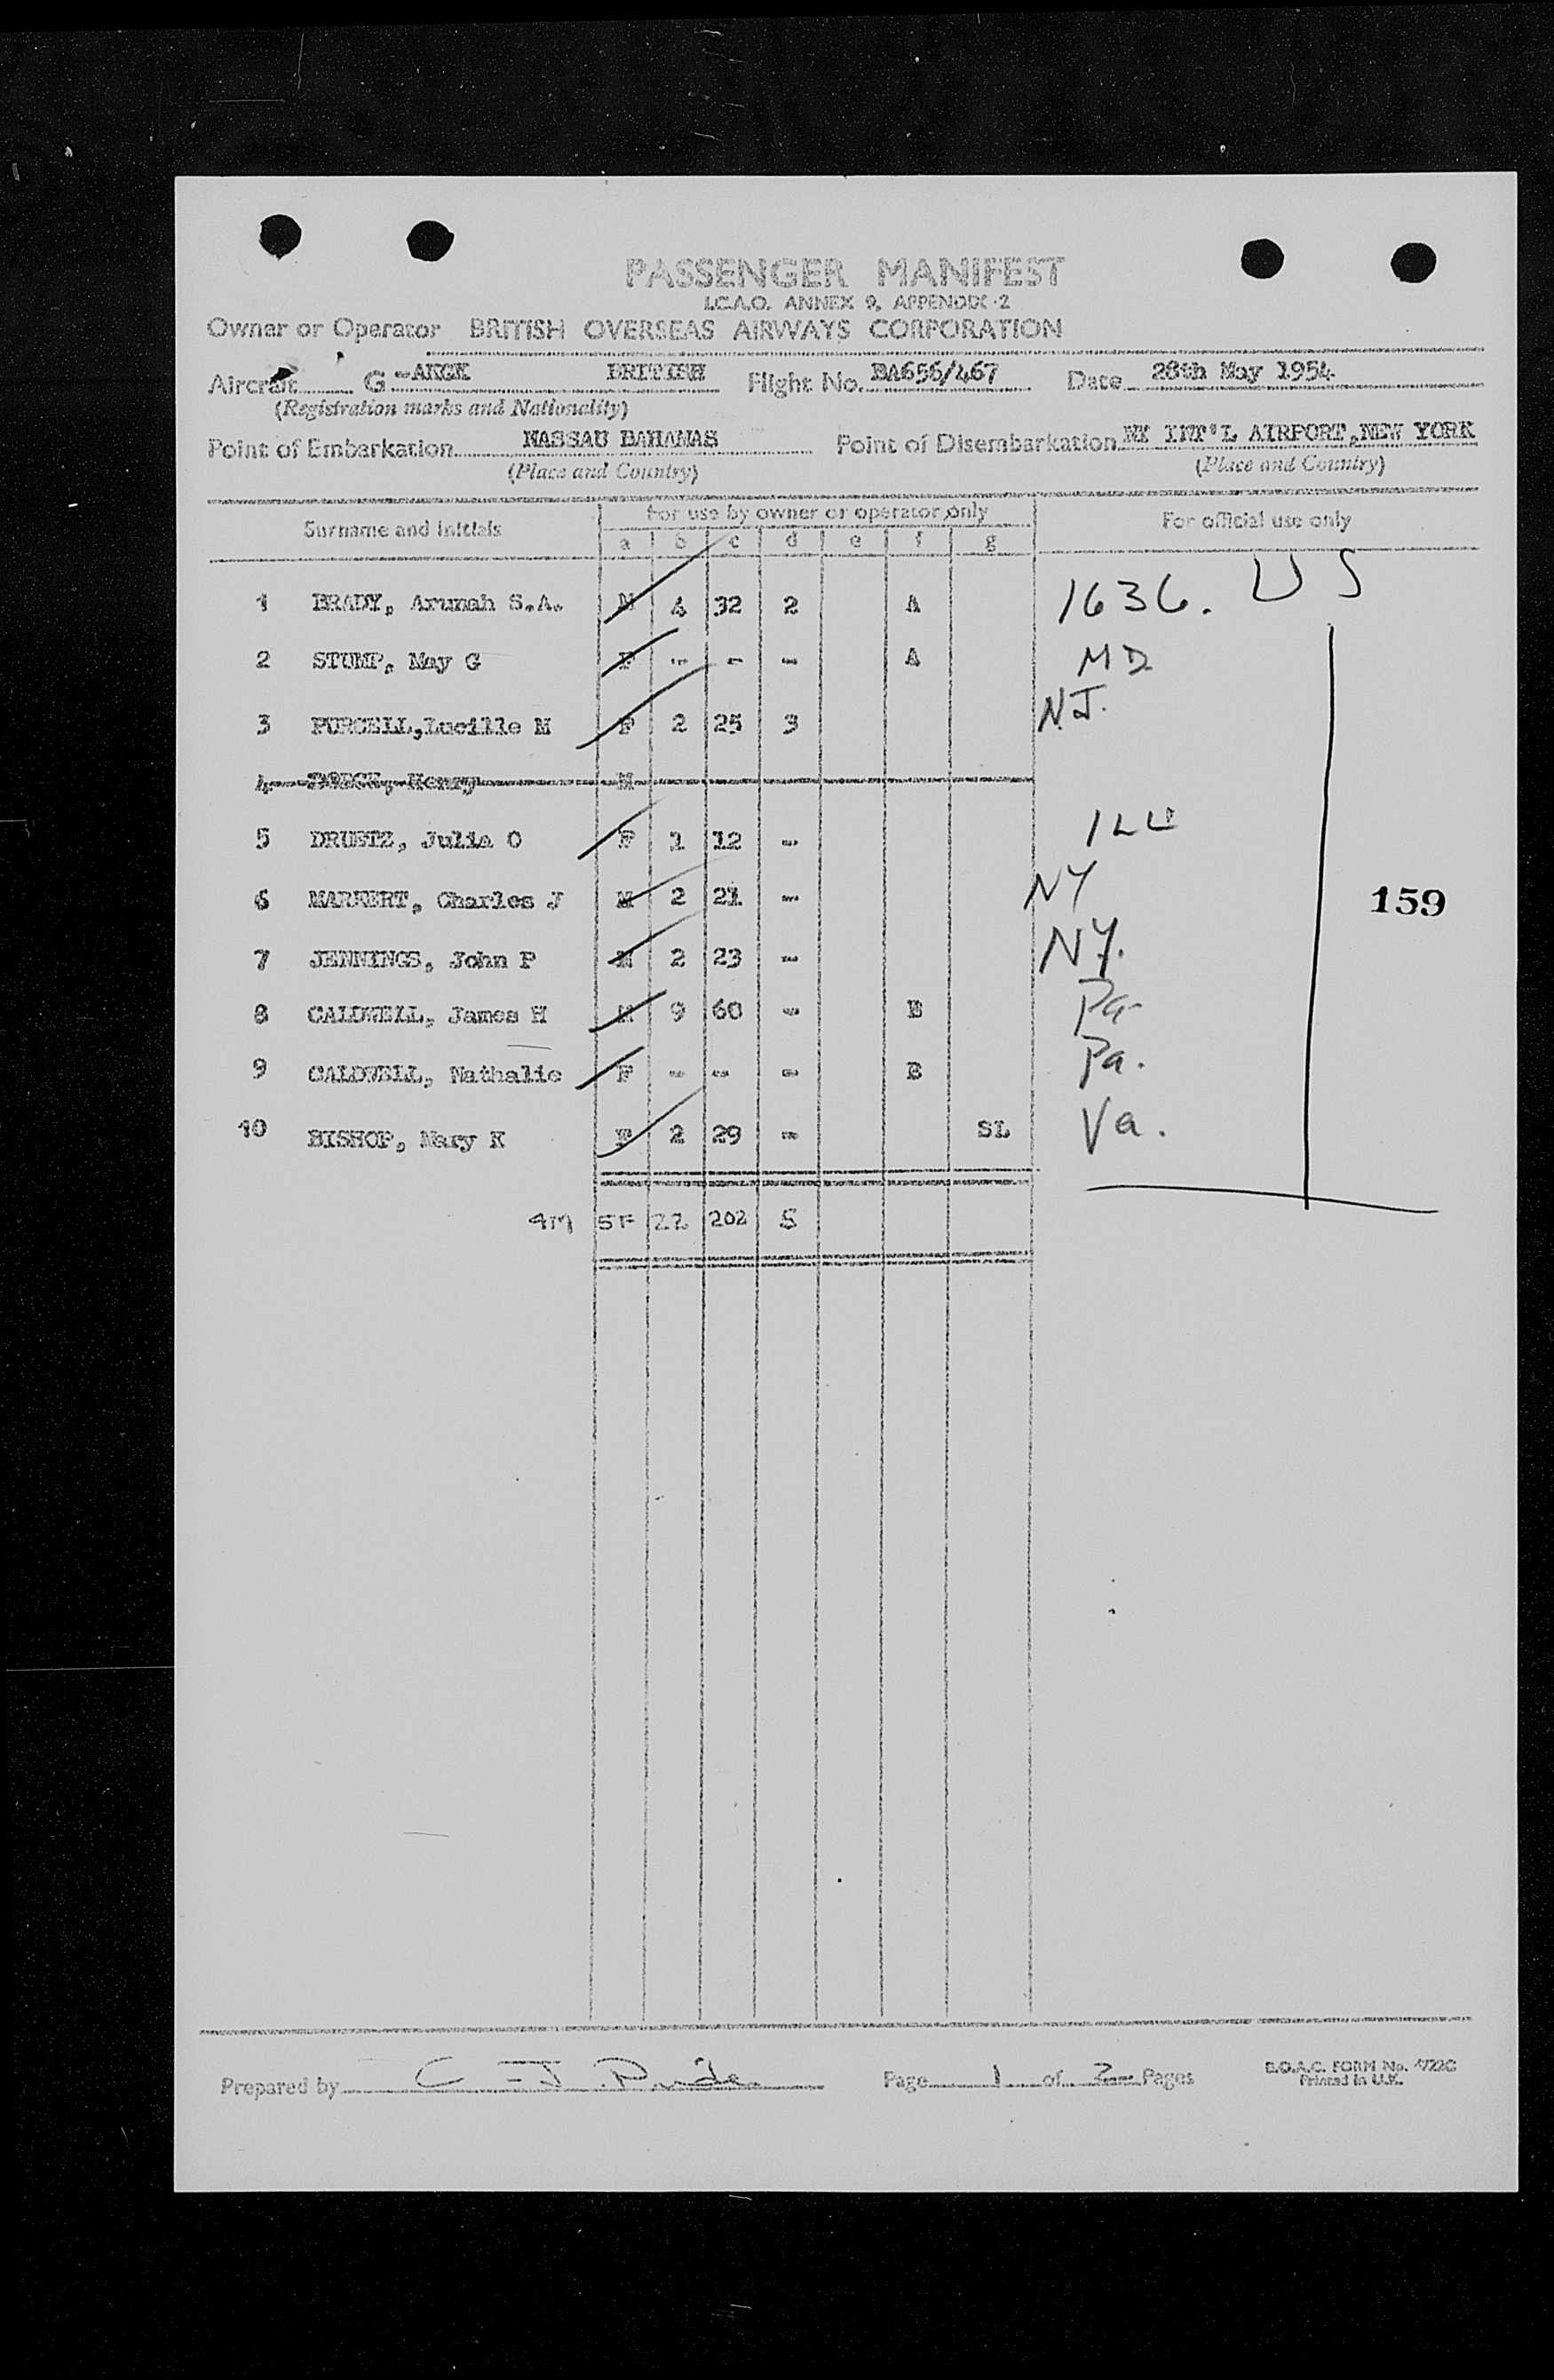 PASSENGER MANIFEST
I.C.A.O. ANNEX 9, APPENDIX 2
Owner or Operator BRITISH OVERSEAS AIRWAYS CORPORATION
Aircraft G -AKGK BRITISH Flight No. BA656/467 Date 28th May 1954
(Registration marks and Nationality)
Point of Embarkation NASSAU BAHAMAS Point of Disembarkation NY INT'L AIRPORT,NEW YORK
(Place and Country) (Place and Country)
Surname and initials For use by owner or operator only For official use only
a b c d e f g
US
1 BRADY, Arunah S.A. M 4 32 2 A 1636.
2 STUMP, May G F - - - A MD
3 PURCELL,Lucille M F 2 25 3 N.J.
4 Henry M
5 Julia O F 1 12 - ILL
6 MARKERT, Charles J M 2 21 - NY
159
7 JENNINGS, John P M 2 23 - NY.
8 CALDWELL, James H M 9 60 - B Pa-
9 CALDWELL, Nathalie F - - - B Pa.
10 BISHOP, Mary K F 2 29 - SL Va.
4M 5F 22 202 5
Prepared by C J Page 1 of 2 Pages
B.O.A.C. FORM No.
Printed in U.K.